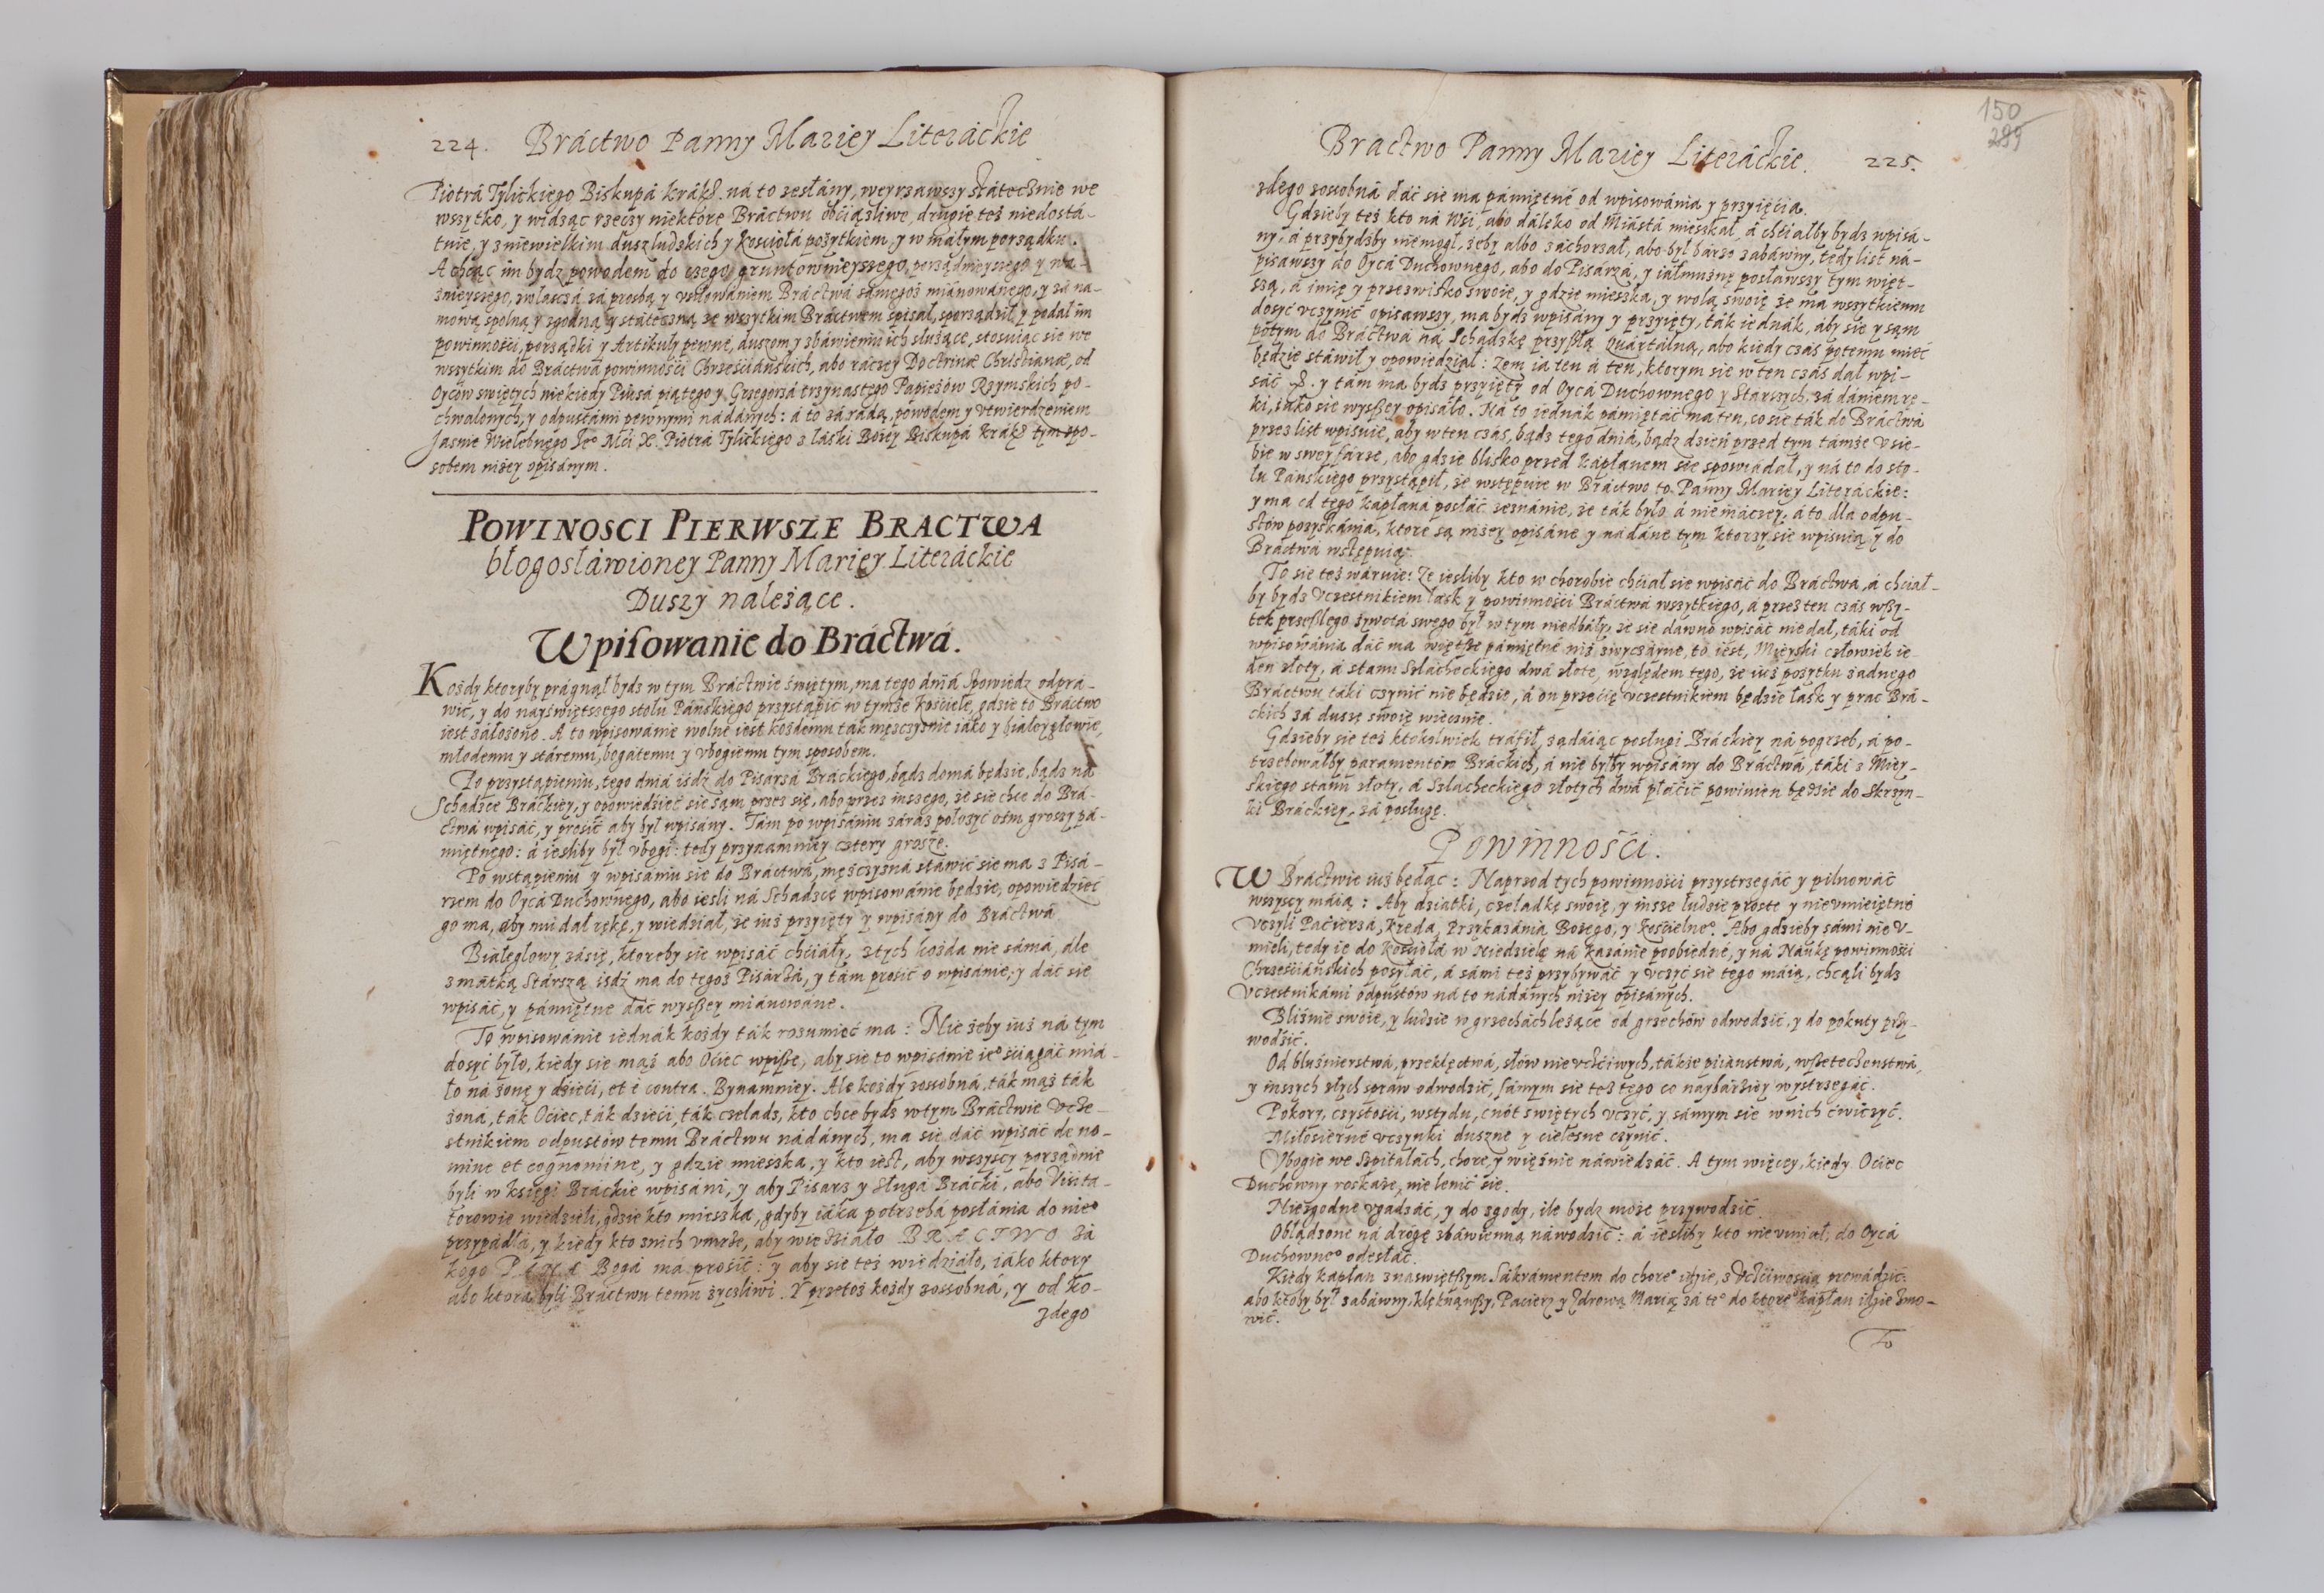 224. Bráctwo Panny Mariey Literáckie
Piotrá Tylickiego Biskupá kráḱ. ná to zesłány, weyrzawszy státecznie we
wszytko, y widząc rzeczy niektóre Bráctwu obciążliwe, drugie też niedostá-
tnie, y z niewielkim dusz ludzkich y kościołá pożytkiem, y w máłym porządku.
A chcąc im bydz powodem do czego gruntownieyszego, porządnieyszego y wa-
żnieyszego, zwłaszczá zá prozbą y vsiłowaniem Bráctwá sámegoż miánowánego, y zá na-
mową spolną y zgodną y státeczną ze wszytkim Bráctwem spisał, sporządził y podał im
powinności, porządki y Artikuły pewne, duszom y zbáwieniu ich służące, stosuiąc sie we
wszytkim do Bráctwá powinności Chrześciáńskich, abo ráczey Doctrinæ Christianæ, od
Oyców świętych niekiedy Piusá piątego y Grzegorzá trzynastego Papieżów Rzymskich po-
chwalonych, y odpustámi pewnymi nádánych: á to zá rádą, powodem y vtwierdzeniem
Jásnie Wielebnego Jeº Mći X. Piotrá Tylickiego z łáski Bożey Biskupá kráḱ tym spo-
sobem niżey opisánym.
POWINOSCI PIERWSZE BRACTWA
błogosłáwioney Panny Mariey Literáckie
Duszy należące.
Wpisowanie do Bráctwá.
Kożdy ktoryby prágnął bydz w tym Bráctwie świętym, ma tego dniá spowiedz odprá-
wić, y do nayświętszego stołu Páńskiego przystąpić w tymże kościele, gdzie to Bráctwo
iest záłożono. A to wpisowánie wolne iest kożdemu ták męszczyznie iáko y białeygłowie,
młodemu y stáremu, bogátemu y vbogiemu tym sposobem.
Po przystąpieniu, tego dniá iśdź do Pisárzá Bráckiego, bądz domá będzie, bądz ná
Schadzce Bráckiey, y opowiedzieć sie sąm przez się, abo przez inszego, że sie chce do Brá-
ctwá wpisáć, y prosić aby był wpisány. Tám po wpisániu záráz położyć ośm groszy pá-
miętnego: á iesliby był vbogi: tedy przynamniey cztery grosze.
Po wstąpieniu y wpisániu sie do Bráctwá, męszczyzná stáwić sie ma z Pisá-
rzem do Oycá Duchownego, abo iesli ná Schadzce wpisowánie będzie, opowiedzieć
go ma, aby mu dał rękę, y wiedział, że iuż przyięty y wpisány do Bráctwá.
Białegłowy zásię, ktoreby sie wpisáć chciáły, z tych kożda nie sámá, ále
z mátką Stárszą iśdź ma do tegoż Pisárzá, y tám prosić o wpisánie, y dáć sie
wpisáć, y pámiętne dáć wyszszey miánowáne.
To wpisowánie iednák kożdy ták rozumieć ma: Nie żeby iuż ná tym
dosyć było, kiedy sie mąż abo Ociec wpisze, aby sie to wpisánie ieº ściągáć miá-
ło ná żonę y dzieci, et é contra. Bynamniey. Ale kożdy zossobná, ták mąż ták
żoná, ták Ociec, ták dzieci, ták czeladz, kto chce bydz w tym Bráctwie vcze-
stnikiem odpustów temu Bráctwu nádánych, ma się dáć wpisáć de no-
mine et cognomine, y gdzie mieszka, y kto iest, aby wszyscy porządnie
byli w księgi Bráckie wpisáni, y aby Pisarz y Sługá Brácki, abo Visita-
torowie wiedzieli, gdzie kto mieszka, gdyby iáka potrzebá posłánia do nieº
przypádłá, y kiedy kto z nich vmrze, aby wiedziáło BRACTWO zá
kogo PANA Bogá ma prosić: y aby sie też wiedziáło, iáko ktory
abo ktora byli Bráctwu temu życzliwi. Y przetoż kożdy zossobná, y od ko-
żdego
150
Bractwo Panny Mariey Literáckie. 225.
żdego zossobná dáć sie ma pámiętné od wpisowánia y przyięcia.
Gdzieby też kto ná Wsi, abo dáleko od Miástá mieszkał, á chciałby bydz wpisá-
ny, á przybydźby niemogł, żeby albo záchorzał, abo był bárzo zabáwny, tedy list ná-
pisawszy do Oycá Duchownego, abo do Pisárzá, y iałmużnę posławszy tym więt-
szą, á imię y przezwisko swoie, y gdzie mieszka, y wolą swoię że ma wszytkiemu
dosyć vczynić opisawszy, ma bydz wpisány y przyięty, ták iednák, aby sie y sąm
potym do Bráctwá ná Schadzkę przyszłą Quártalną, abo kiedy czás potemu mieć
będzie stáwił y opowiedział: Zem ia ten á ten, ktorym sie w ten czás dał wpi-
sáć. y tám ma bydz przyięty od Oycá Duchownego y Stárszych, zá dániem rę-
ki, iáko sie wyszszey opisáło. Ná to iednák pámiętáć ma ten, co sie ták do Bráctwá
przez list wpisuie, aby w ten czás, bądz tego dniá, bądz dzień przed tym támże v sie-
bie w swey fárze, abo gdzie blisko przed kápłanem sie spowiadał, y ná to do sto-
łu Páńskiego przystąpił, że wstępuie w Bráctwo to Panny Mariey Literáckie:
y ma od tego kápłaná posłáć zeznánie, że ták było á nie ináczey, á to dla odpu-
stów pozyskánia, ktore są niżey opisáne y nádáne tym ktorzy sie wpisuią y do
Bráctwá wstępuią.
To sie też wáruie: Ze iesliby kto w chorobie chciał sie wpisáć do Bráctwa, á chciał-
by bydz vczestnikiem łásk y powinności Bráctwá wszytkiego, á przez ten czás wszy-
tek przeszłego żywotá swego był w tym niedbáły, że sie dáwno wpisáć nie dał, táki od
wpisowánia dáć ma większe pámiętné niż zwyczáyne, to iest, Mieyski człowiek ie-
den złoty, á stanu Szlácheckiego dwá złote, względem tego, że iuż pożytku żadnego
Bráctwu táki czynić nie będzie, á on przecię vczestnikiem będzie łásk y prac Brá-
ckich zá duszę swoię wiecznie.
Gdzieby sie też ktokolwiek tráfił, żądáiąc posługi Bráckiey ná pogrzeb, á po-
trzebowałby paramentów Bráckich, á nie byłby wpisány do Bráctwá, táki z Miey-
skiego stanu złoty, á Szlácheckiego złotych dwá płácić powinien będzie do Skrzyn-
ki Bráckiey, zá posługę.
Powinności.
W Bráctwie iuż będąc: Naprzod tych powinności przystrzegáć y pilnowáć
wszyscy máią: Aby dziatki, czeladkę swoię, y insze ludzie proste y nievmieiętné
vczyli Pacierzá, kreda, Przykazánia Bożego, y kościelneº. Abo gdzieby sámi nie v-
mieli, tedy ie do kościołá w Niedzielę ná kazánie poobiedné, y ná Náukę powinności
Chrześciáńskich posyłáć, á sámi też przybywáć y vczyć sie tego máią, chcąli bydz
vczestnikámi odpustów ná to nádánych niżey opisánych.
Bliźnie swoie, y ludzie w grzechách leżące od grzechów odwodzić, y do pokuty przy-
wodźić.
Od bluźnierstwá, przeklęctwá, słów nievczciwych, tákże piiáństwá, wszeteczeństwá,
y inszych złych spraw odwodzić, sámym sie też tego co naybárziey wystrzegáć.
Pokory, czystości, wstydu, cnót świętych vczyć, y sámym sie w nich ćwiczyć.
Miłosierné vczynki duszne y cielesne czynić.
Vbogie we Szpitalách, chore, y więźnie náwiedzáć. A tym więcey, kiedy Ociec
Duchowny roskaże, nie lenić sie.
Niezgodne vgadzáć, y do zgody, ile bydz może przywodzić.
Obłądzone ná drogę zbáwienną náwodzić: á iesliby kto nievmiał, do Oycá
Duchowneº odesłáć.
Kiedy kápłan z naświętszym Sákrámentem do choreº idzie, z vczciwością prowádzić:
abo ktoby był zabáwny, klęknąwszy, Pacierz y Zdrową Marią zá teº do ktoreº kápłan idzie zmo-
wić.
To